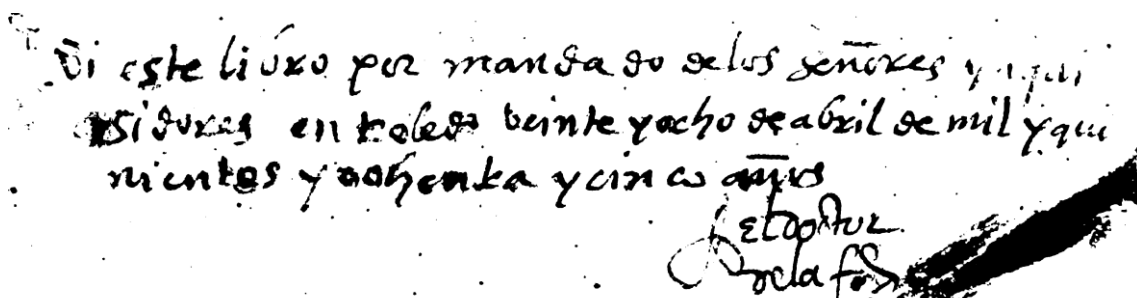 Vi este livro por mandado delos señores ynqui
sidores en toledo veinte y ocho de abril de mil y qui
nientos y ochenta y cinco años
el doctor
dela